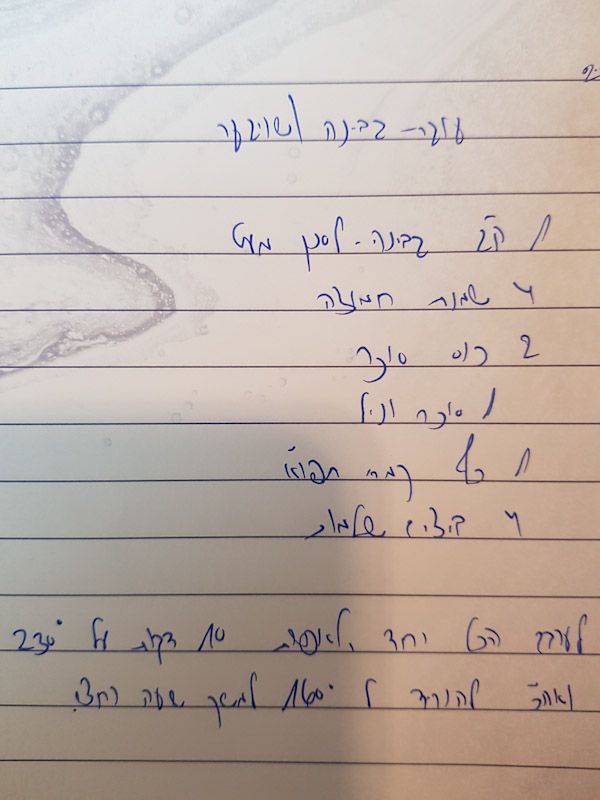 עוגת- גבינה
1 ק"ג גבינה - לסנן מעט
4 שמנת חמוצה
2 כוס סוכר
1 סוכר וניל
1 כף קמח תפו"א
4 ביצים שלמות
לערבב הכל יחד, לאפות 10 דקות על 230°
ואח"כ להוריד ל 160° למשך שעה וחצי.